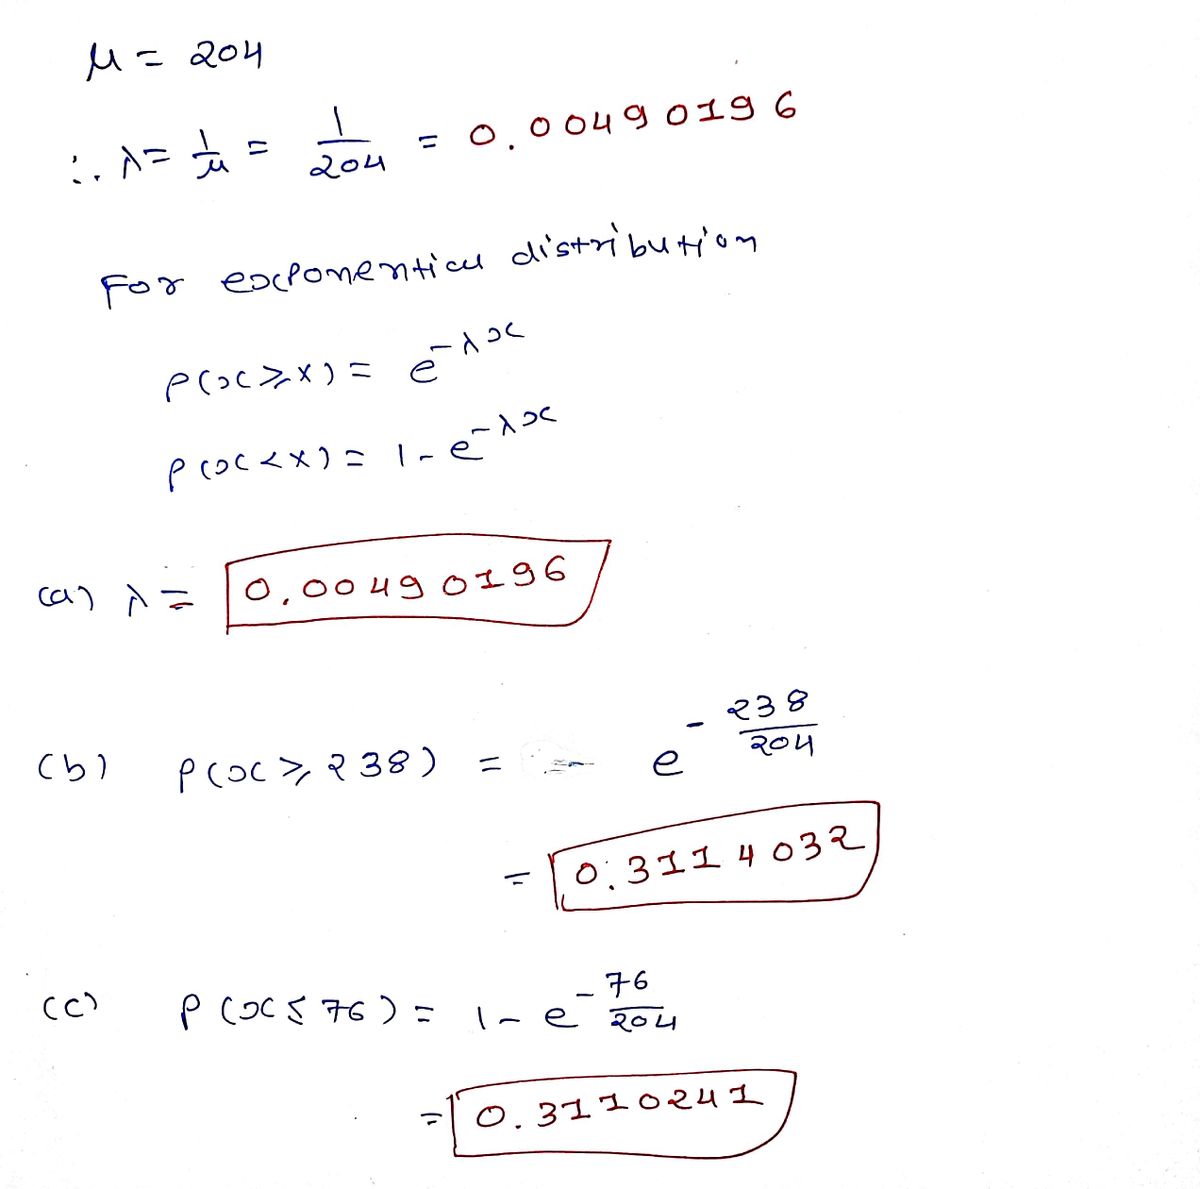 μ = 204
∴ λ = 1/μ = 1/204 = 0.00490196
For exponential distribution
P(x ≥ X) = e^(-λx)
P(x < X) = 1 - e^(-λx)
(a) λ = 0.00490196
(b) P(x ≥ 238) = e^(-238/204)
= 0.3114032
(c) P(x ≤ 76) = 1 - e^(-76/204)
= 0.3110241